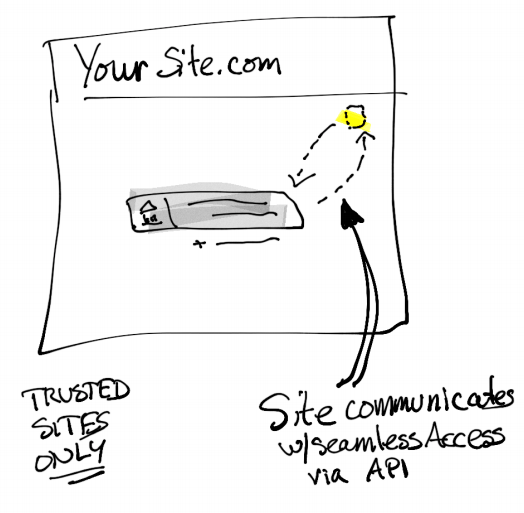 Your Site.com
TRUSTED
SITES
ONLY
Site communicates
w/seamlessAccess
via API